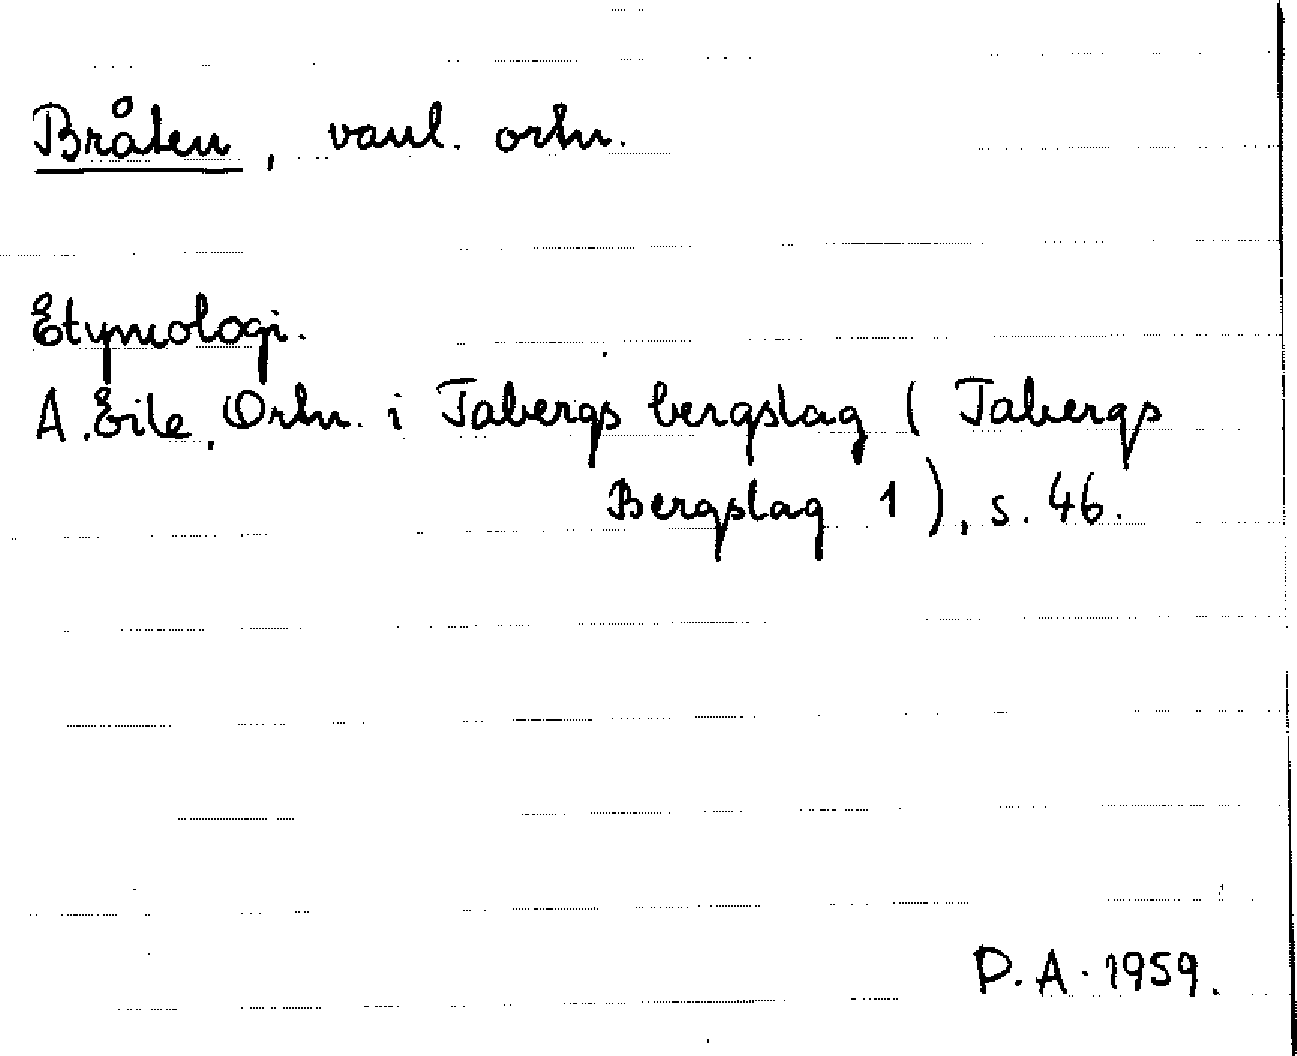 Bråten, vanl. ortn.
Etymologi.
A. Eile, Ortn. i Tabergs bergslag ( Tabergs
Bergslag 1 ), s. 46.
P. A. 1959.